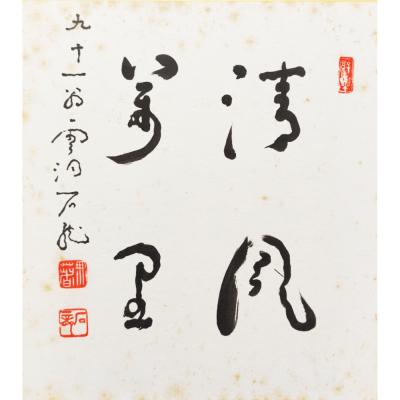 清風
萬里
九十一翁洞石